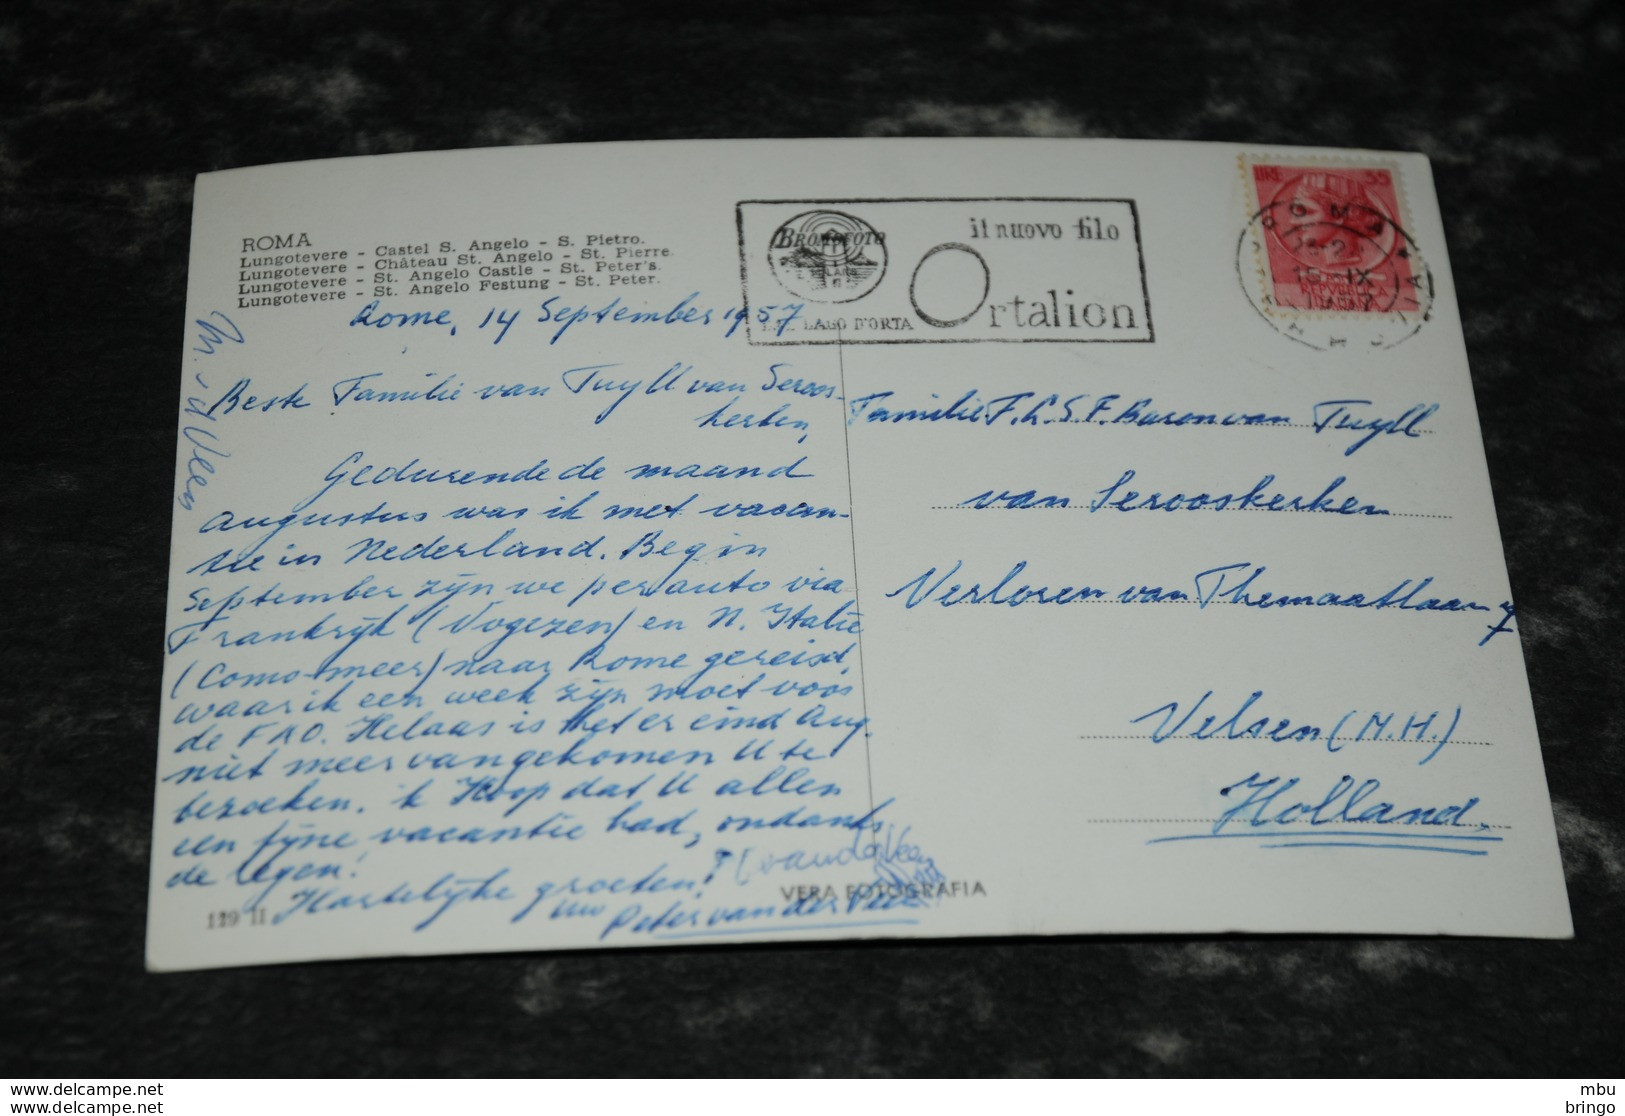 ROMA
Lungotevere - Castel S. Angelo - S. Pietro.
Lungotevere - Château St. Angelo - St. Pierre.
Lungotevere - St. Angelo Castle - St. Peter's.
Lungotevere - St. Angelo Festung - St. Peter.
Rome, 14 September 1957
Beste Familie van Tuyll van Seroos-
kerken,
Gedurende de maand
Augustus was ik met vacan-
tie in Nederland. Begin
September zijn we per auto via
Frankrijk (Vogezen) en N. Italië
(Como-meer) naar Rome gereisd,
waar ik een week zijn moet voor
de FAO. Helaas is het er eind Aug.
niet meer van gekomen U te
bezoeken. Ik Hoop dat U allen
een fijne vacantie had, ondanks
de regen!
Hartelijke groeten!
Uw Peter van der Veen
(van der Veen
M. v d Veen
119 II
VERA FOTOGRAFIA
BROMOFOTO
MILANO
LAGO D'ORTA
il nuovo filo
Ortalion
LIRE 25
REPUBBLICA
ITALIANA
ROMA
IX
Familie F.L.S.F. Baron van Tuyll
van Serooskerken
Verloren van Themaatlaan 7
Velsen (N.H.)
Holland.
www.delcampe.net
www.delcampe.net
mbu
bringo